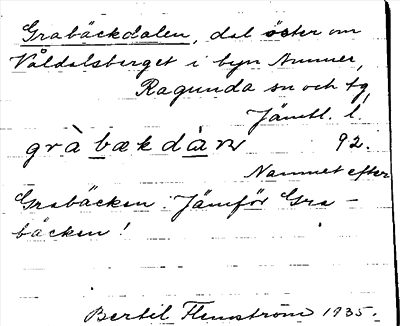 Grabäckdalen, dal öster om
Våldalsberget i byn Ammer,
Ragunda sn och tg
Jämtl. l.
gràbækdàɴ 92.
Namnet efter
Grabäcken. Jämför Gra-
bäcken!
Bertil Flemström 1935.